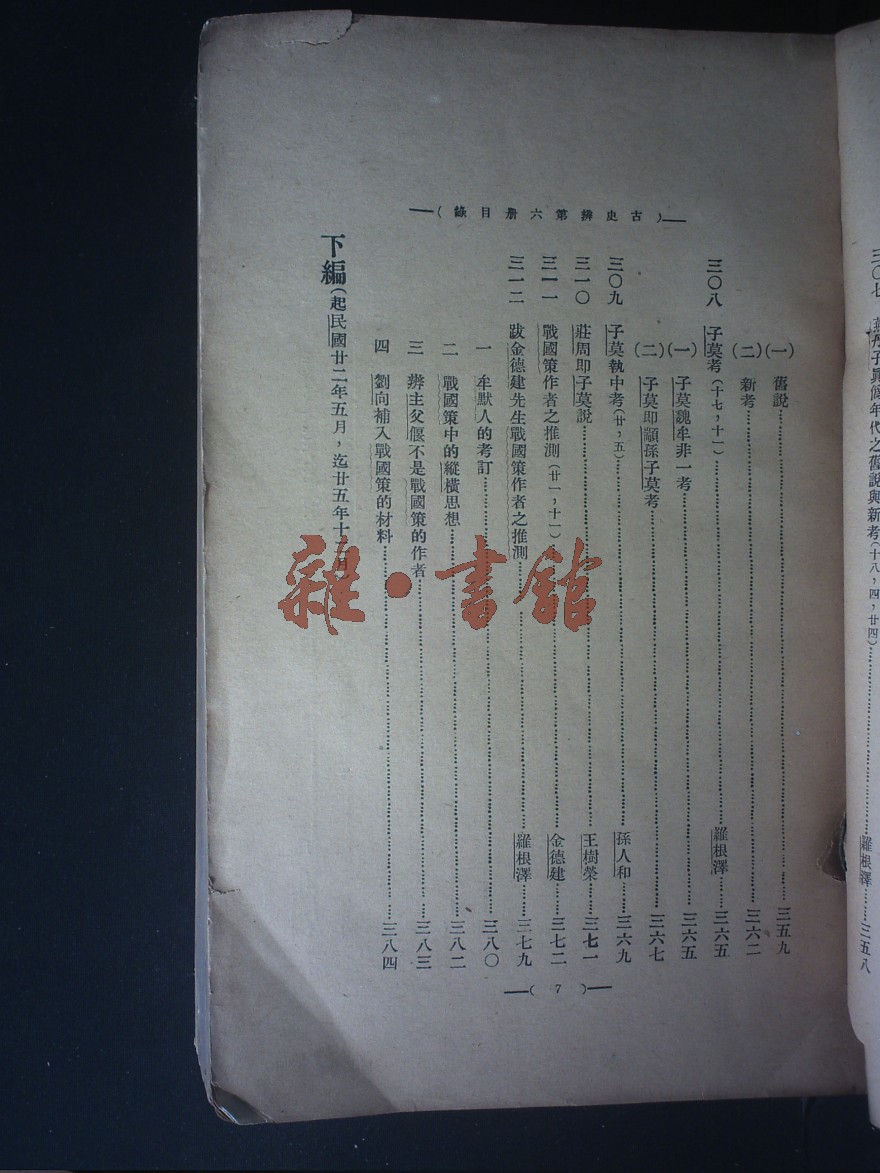 三〇七 燕丹子真僞年代之舊說與新考(十八,四,廿四)……羅根澤……三五八
(古史辨第六册目錄)
(一) 舊說……三五九
(二) 新考……三六二
三〇八 子莫考(十七,十一)……羅根澤……三六五
(一) 子莫魏牟非一考……三六五
(二) 子莫即顓孫子莫考……三六七
三〇九 子莫執中考(廿,五)……孫人和……三六九
三一〇 莊周即子莫說……王樹榮……三七一
三一一 戰國策作者之推測(廿一,十一)……金德建……三七二
三一二 跋金德建先生戰國策作者之推測……羅根澤……三七九
一 牟默人的考訂……三八〇
二 戰國策中的縱橫思想……三八二
三 辨主父偃不是戰國策的作者……三八三
四 劉向補入戰國策的材料……三八四
下編(起民國廿二年五月,迄廿五年十二月)
(7)
雜·書館